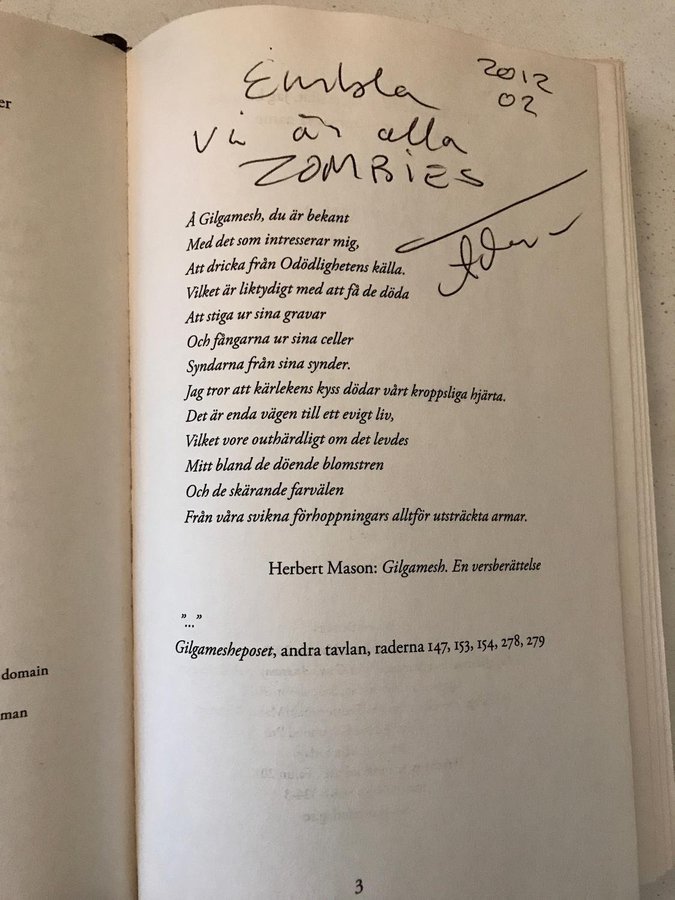 er
domain
man
Embla
2012
02
vi är alla
ZOMBIES
Å Gilgamesh, du är bekant
Med det som intresserar mig,
Att dricka från Odödlighetens källa.
Vilket är liktydigt med att få de döda
Att stiga ur sina gravar
Och fångarna ur sina celler
Syndarna från sina synder.
Jag tror att kärlekens kyss dödar vårt kroppsliga hjärta.
Det är enda vägen till ett evigt liv,
Vilket vore outhärdligt om det levdes
Mitt bland de döende blomstren
Och de skärande farvälen
Från våra svikna förhoppningars alltför utsträckta armar.
Herbert Mason: Gilgamesh. En versberättelse
”...”
Gilgamesheposet, andra tavlan, raderna 147, 153, 154, 278, 279
3